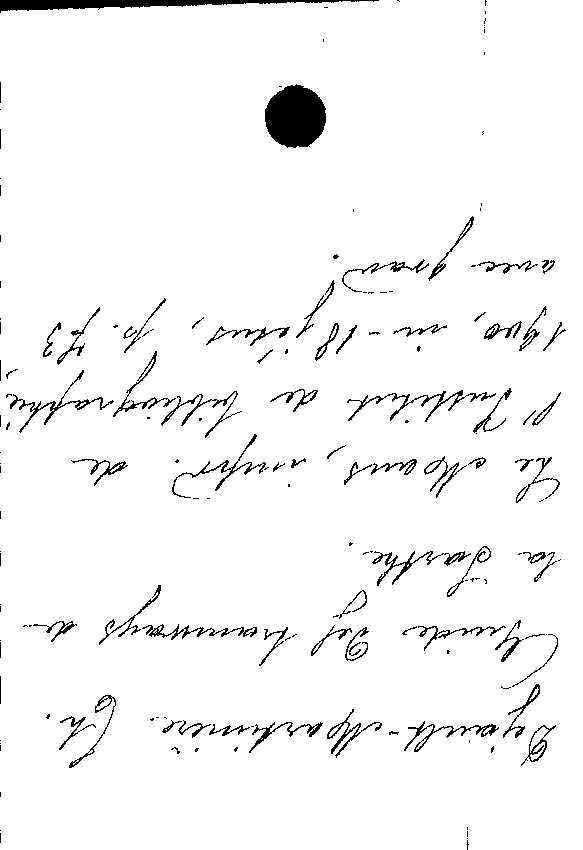 Dejault-Martinière Ch.
Guide des tramways de
la Sarthe.
Le Mans, impr. de
l'Institut de bibliographie,
1900, in-18 jésus, p. 73
avec grav.